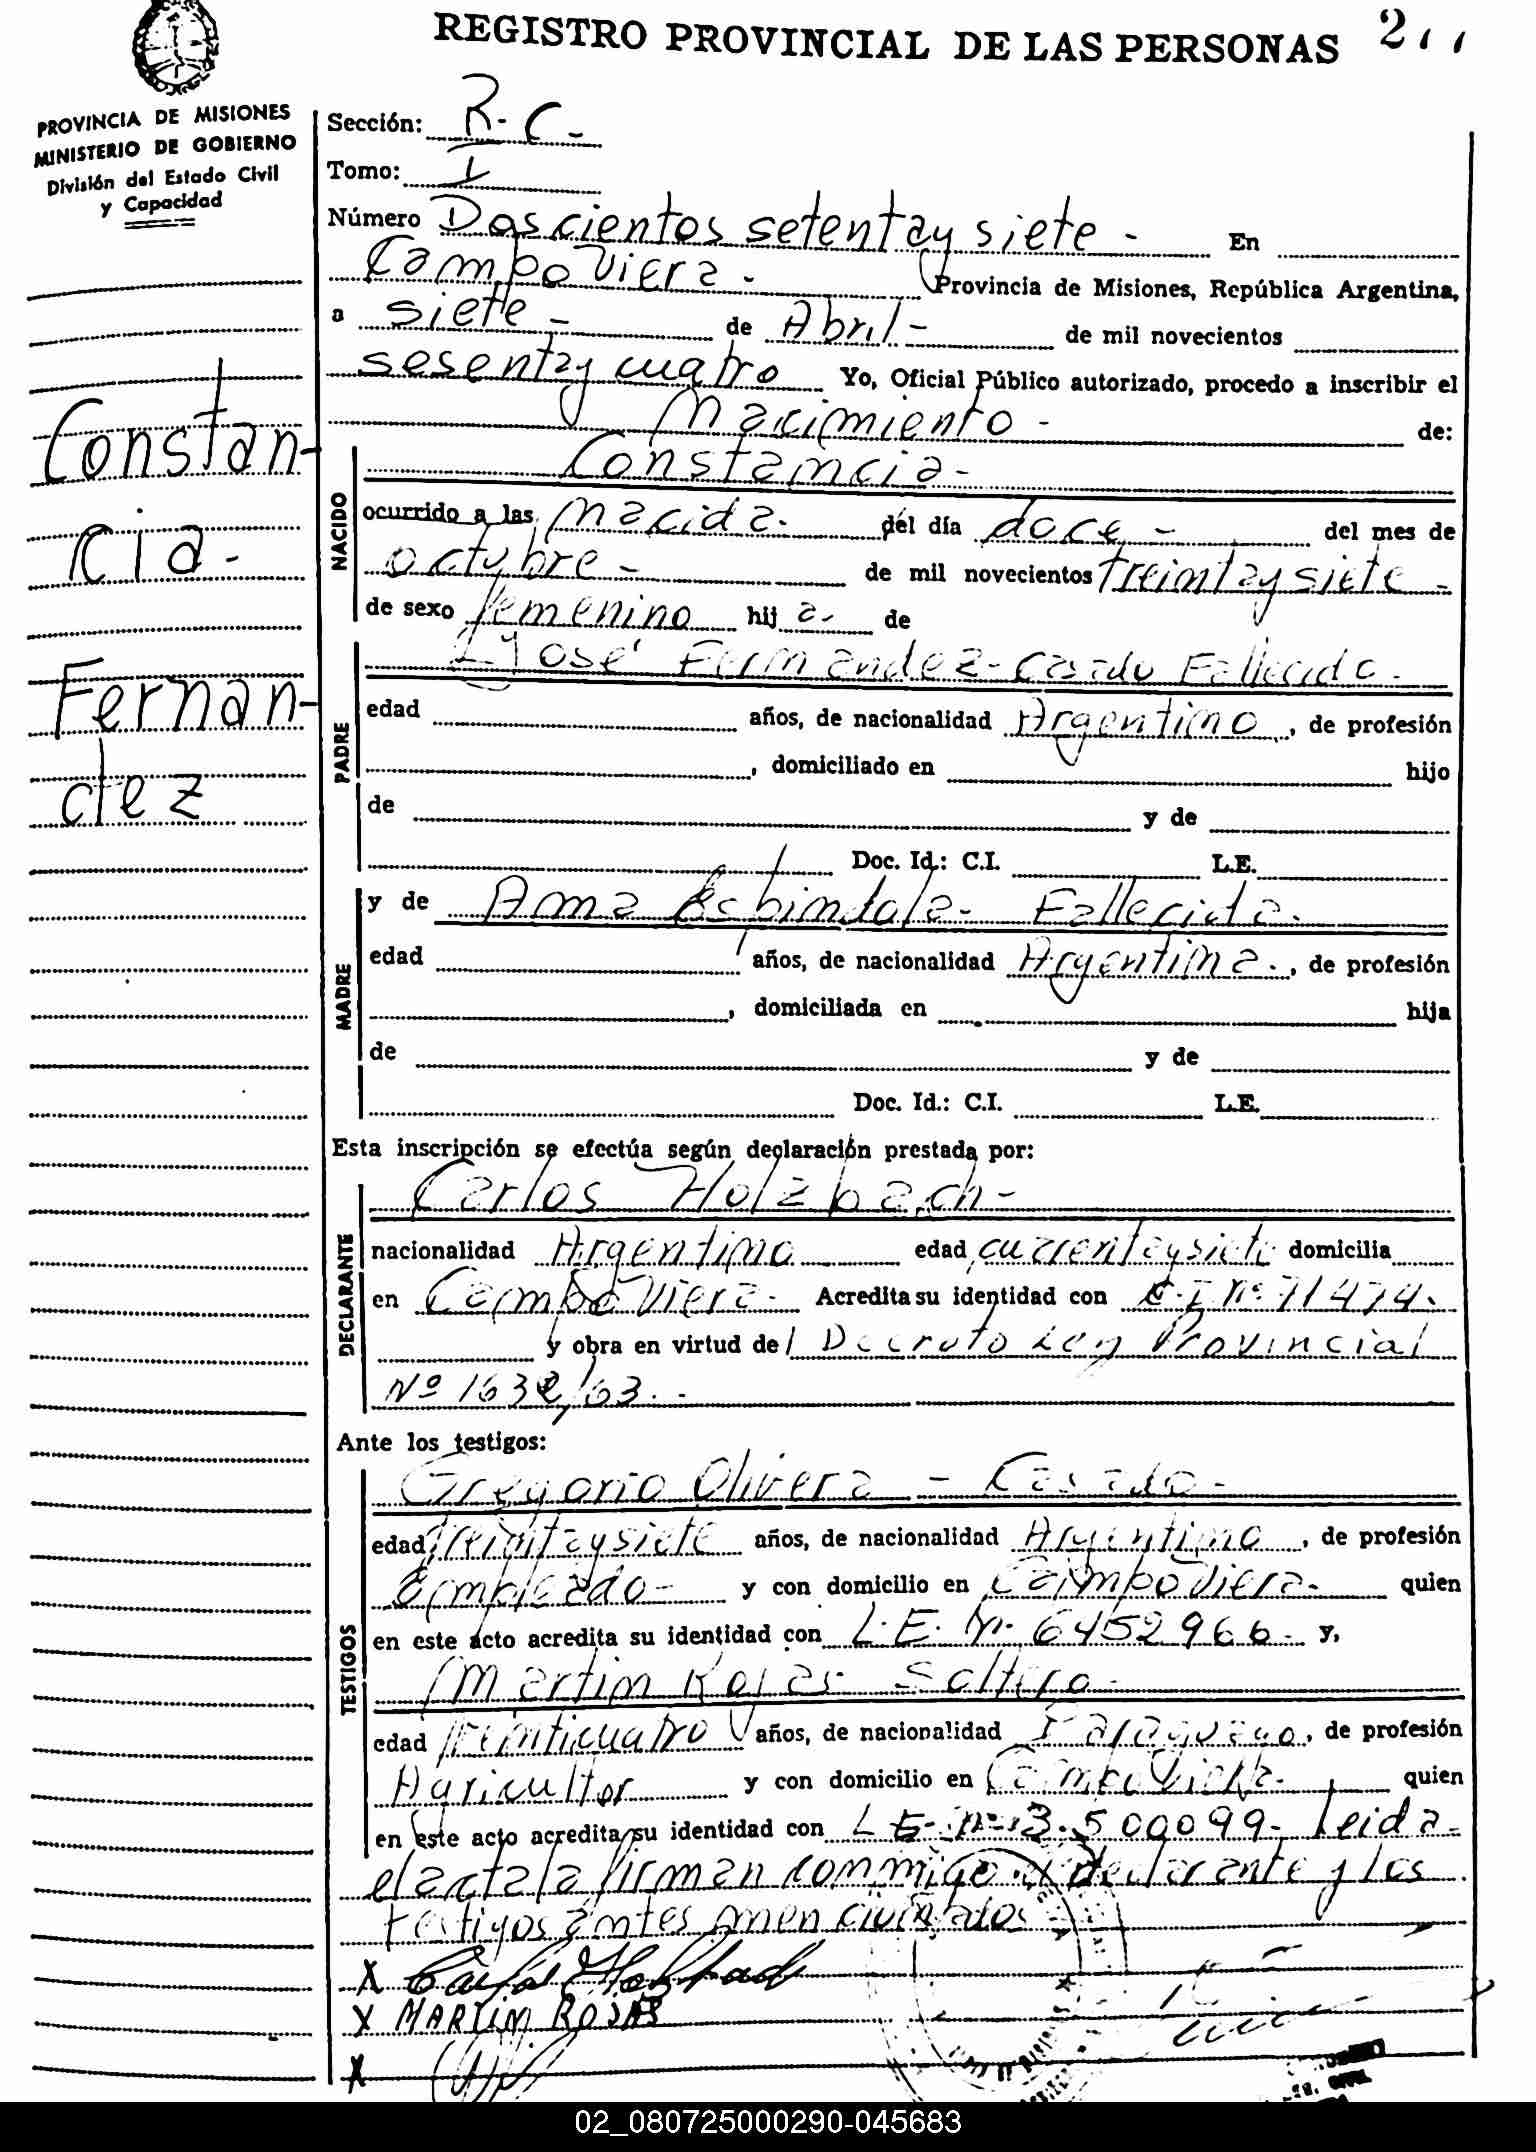 REGISTRO PROVINCIAL DE LAS PERSONAS 277
PROVINCIA DE MISIONES
MINISTERIO DE GOBIERNO
División del Estado Civil
y Capacidad
Constan-
cia-
Fernan-
dez
Sección: R.C.-
Tomo: I
Número Doscientos setentaysiete - En
Campo Viera - Provincia de Misiones, República Argentina,
a siete - de Abril - de mil novecientos
sesentaycuatro Yo, Oficial Público autorizado, procedo a inscribir el
Nacimiento - de:
NACIDO
Constancia -
ocurrido a las Nacida. del día doce - del mes de
octubre - de mil novecientos treintaysiete -
de sexo femenino hij a- de
PADRE
José Fernandez- Casado Fallecido -
edad años, de nacionalidad Argentino, de profesión
, domiciliado en hijo
de y de
Doc. Id.: C.I. L.E.
MADRE
y de Ana Esbindola- Fallecida.
edad años, de nacionalidad Argentina., de profesión
, domiciliada en hija
de y de
Doc. Id.: C.I. L.E.
Esta inscripción se efectúa según declaración prestada por:
DECLARANTE
Carlos Holzbach -
nacionalidad Argentino edad cuarentaysiete domicilia
en Campo Viera- Acredita su identidad con C.I nº 71474.
y obra en virtud de Decreto Ley Provincial
Nº 1632/63.-
Ante los testigos:
TESTIGOS
Gregorio Olivera - Casado -
edad treintaysiete años, de nacionalidad Argentino, de profesión
Empleado - y con domicilio en Campo Viera- quien
en este acto acredita su identidad con L.E. Nº 6452966- y,
Martin Rojas Soltero -
edad Veinticuatro años, de nacionalidad Paraguayo, de profesión
Agricultor y con domicilio en Campo Viera- quien
en este acto acredita su identidad con L E- nº 3.500099- Leida
el acta la firman conmigo el declarante y los
testigos antes mencionados
X Carlos Holzbach
X MARTIN ROJAS
X
02_080725000290-045683